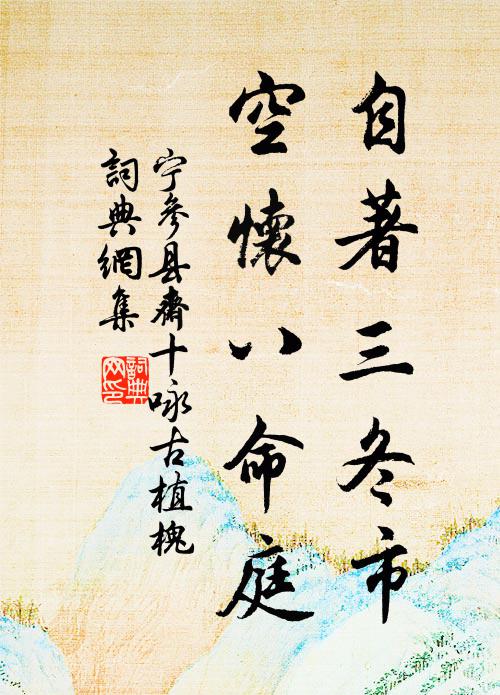 自著三冬市
空懷八命庭
宁參县齋十咏古植槐
詞典網集
詞典网印